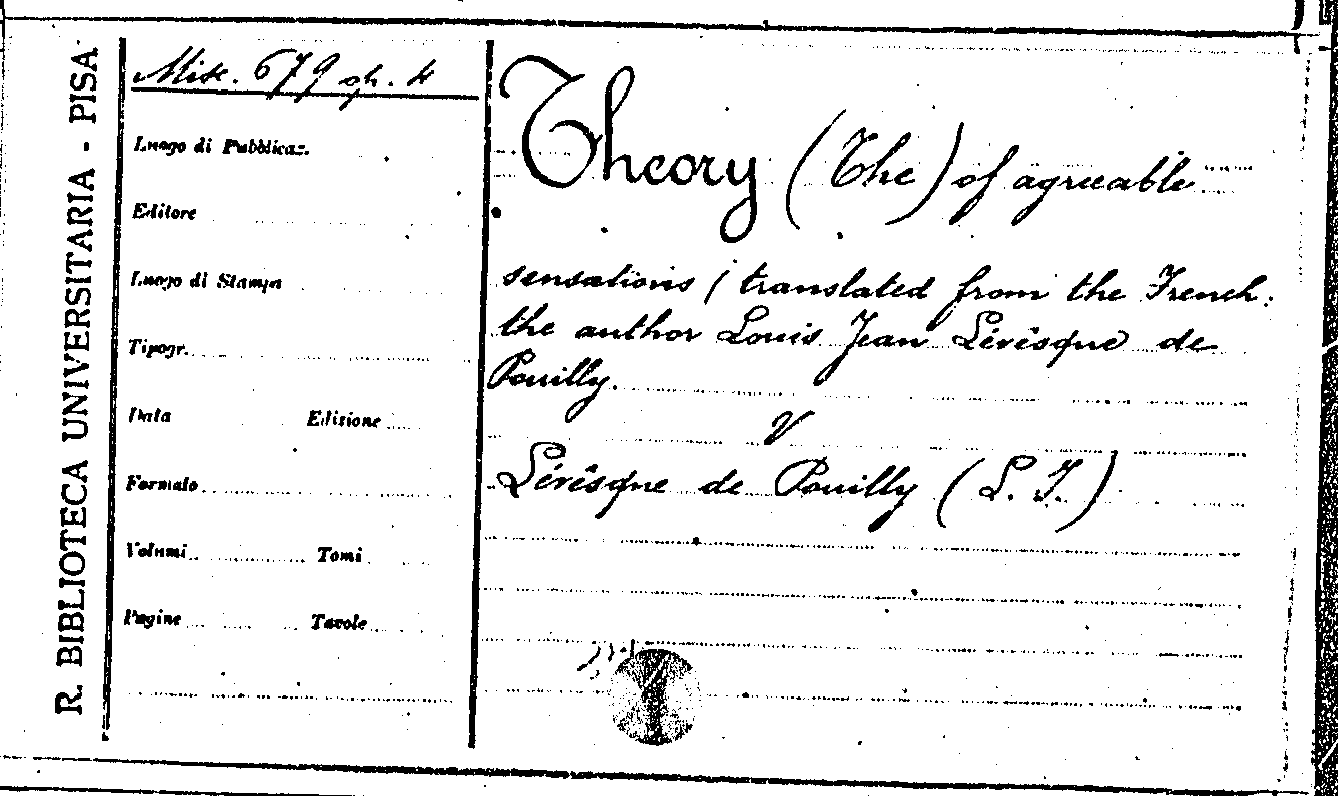 R. BIBLIOTECA UNIVERSITARIA - PISA
Misc. 679 op. 4
Luogo di Pubblicaz.
Editore
Luogo di Stampa
Tipogr.
Data Edizione
Formato
Volumi Tomi
Pagine Tavole
Theory (The) of agreeable
sensations / translated from the French:
the author Louis Jean Lévêsque de
Pouilly.
V
Lévêsque de Pouilly (L. J.)